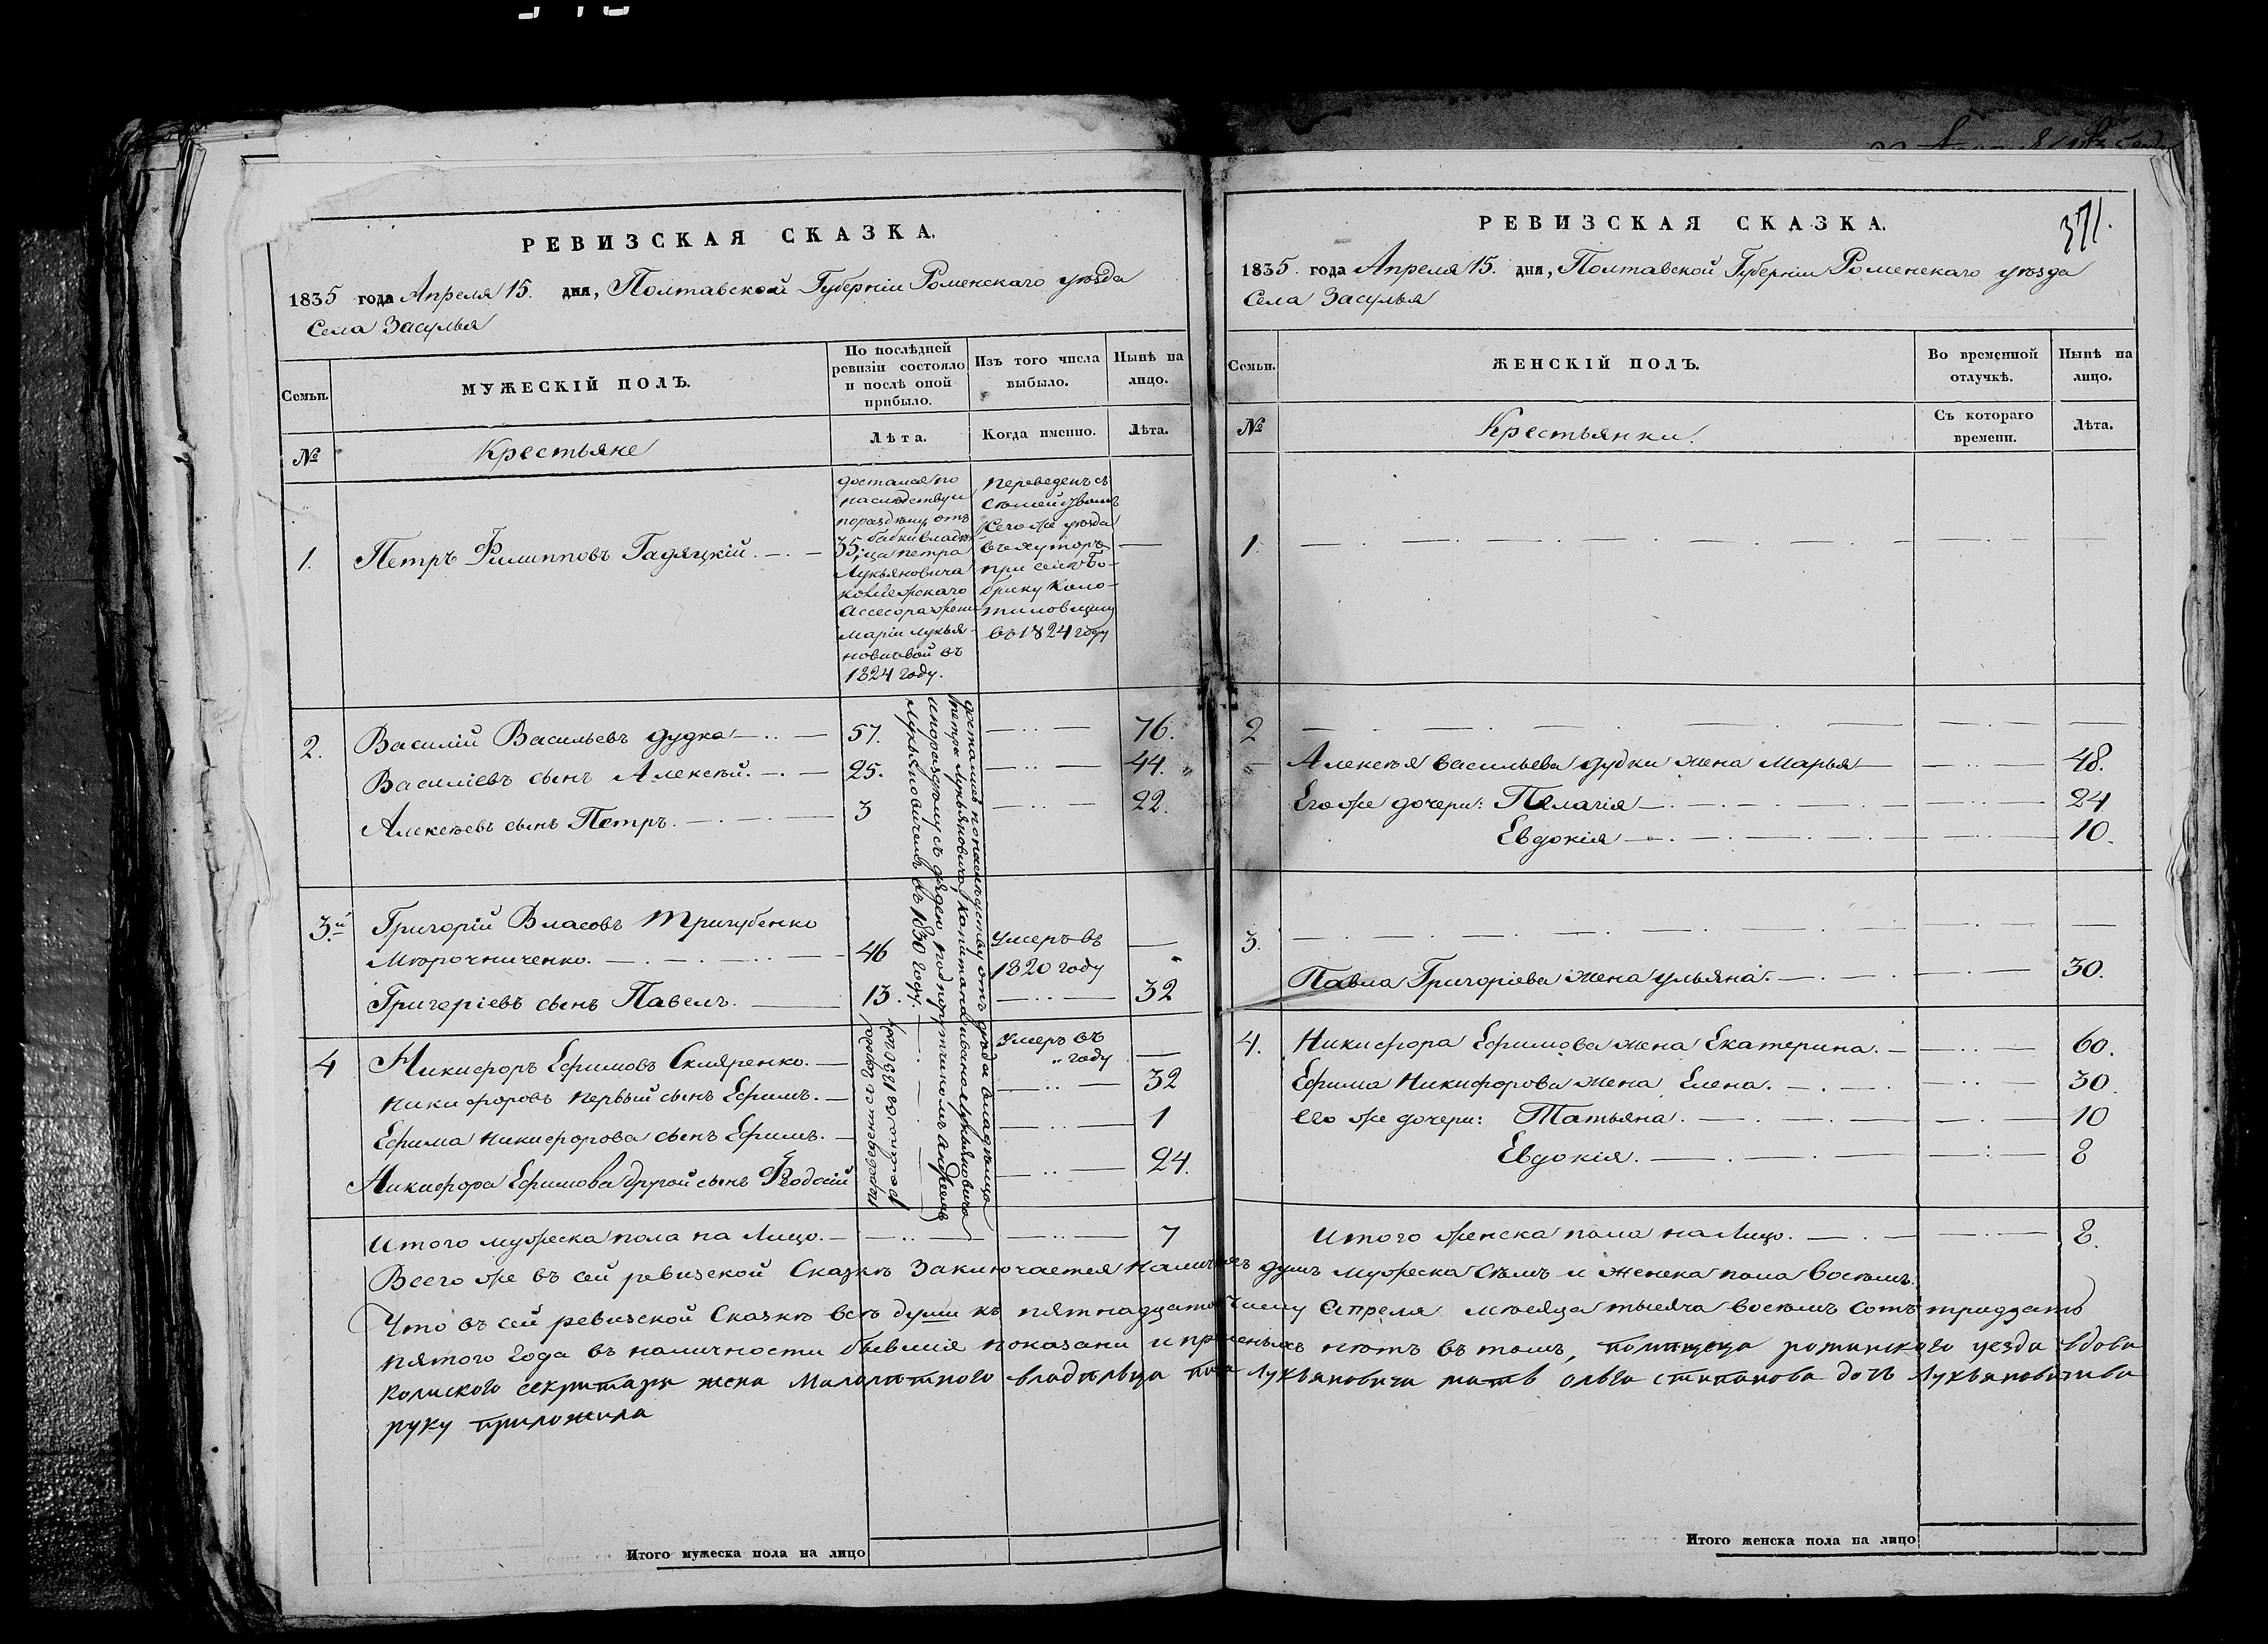 РЕВИЗСКАЯ СКАЗКА.
1835 года Апреля 15. дня, Полтавской Губерніи Роменскаго уѣзда
Села Засулья
Семьи.
МУЖЕСКІЙ ПОЛЪ.
По послѣдней
ревизіи состояло
и послѣ оной
прибыло.
Изъ того числа
выбыло.
Нынѣ на
лицо.
№
Крестьяне
Лѣта.
Когда именно.
Лѣта.
1.
Петръ Филипповъ Гадяцкій.
35.
достался по
наслѣдству и
по раздѣлу отъ
бабки владѣль-
ца Петра
Лукьяновича
колежскаго
Ассесора жени
Маріи Лукья-
новичевой въ
1824 году.
переведенъ съ
семействомъ
сего же уѣзда
въ хуторъ
при селѣ Бо-
брику Коло-
въ 1824 году
2.
Василій Васильевъ Дудка 57. 76.
Василіевъ сынъ Алексѣй. 25. 44.
Алексѣевъ сынъ Петръ. 3 22.
3.й
Григорій Власовъ Тригубенко
Мѣрочниченко. 46 умеръ въ
1820 году
Григоріевъ сынъ Павелъ. 13. 32
4
Никифоръ Ефимовъ Скляренко. Умеръ въ
„ году
Никифоровъ первый сынъ Ефимъ. 32
Ефима Никифорова сынъ Ефимъ. 1
Никифора Ефимова другой сынъ Феодосій 24.
достались по наслѣдству отъ дѣда владѣльца
Петра Лукьяновича, Капитана Ивана Лукьяновича
и по раздѣлу съ дядею подпорутчикомъ Андреемъ
Лукьяновичемъ въ 1830 году.
переведени съ города
Ромна въ 1830 году
Итого мужеска пола на Лицо. 7
РЕВИЗСКАЯ СКАЗКА.
371.
1835. года Апреля 15. дня, Полтавской Губерніи Роменскаго уѣзда
Села Засулья
Семьи.
ЖЕНСКІЙ ПОЛЪ.
Во временной
отлучкѣ.
Нынѣ на
лицо.
№
Крестьянки.
Съ котораго
времени.
Лѣта.
1.
2
Алексѣя Васильева Дудки жена Марья 48.
Его же дочери: Пелагія 24
Евдокія 10.
3.
Павла Григоріева жена Ульяна. 30.
4.
Никифора Ефимова жена Екатерина. 60.
Ефима Никифорова жена Елена. 30.
Его же дочери: Татьяна. 10
Евдокія. 8
Итого женска пола на Лицо. 8.
Всего же въ сей ревизской Сказкѣ Заключается наличныхъ душъ мужеска Сѣмъ и женска пола восемъ.
Что въ сей ревизской Сказкѣ всѣ души къ пятнадцатому числу Апреля мѣсяца тысяча восемъ сотъ тридцать
пятого года въ наличности бывшіе показани и прописныхъ нѣтъ въ томъ, помищица роминского уезда вдова
колиского секритаря жена Малолѣтного владѣльца Лукьяновича мать Ольга Стипанова дочъ Лукьяновичива
руку приложила
Итого мужеска пола на лицо
Итого женска пола на лицо